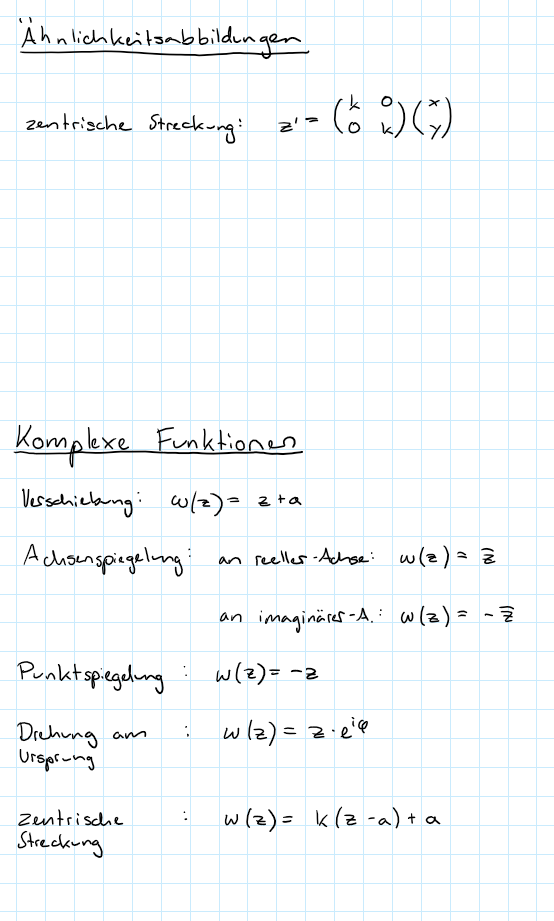 Ähnlichkeitsabbildungen
zentrische Streckung: z' = (k 0 0 k)(x y)
Komplexe Funktionen
Verschiebung: w(z) = z + a
Achsenspiegelung: an reeller-Achse: w(z) = z̅
an imaginärer-A.: w(z) = - z̅
Punktspiegelung : w(z) = -z
Drehung am : w(z) = z · e^{iφ}
Ursprung
zentrische : w(z) = k(z - a) + a
Streckung